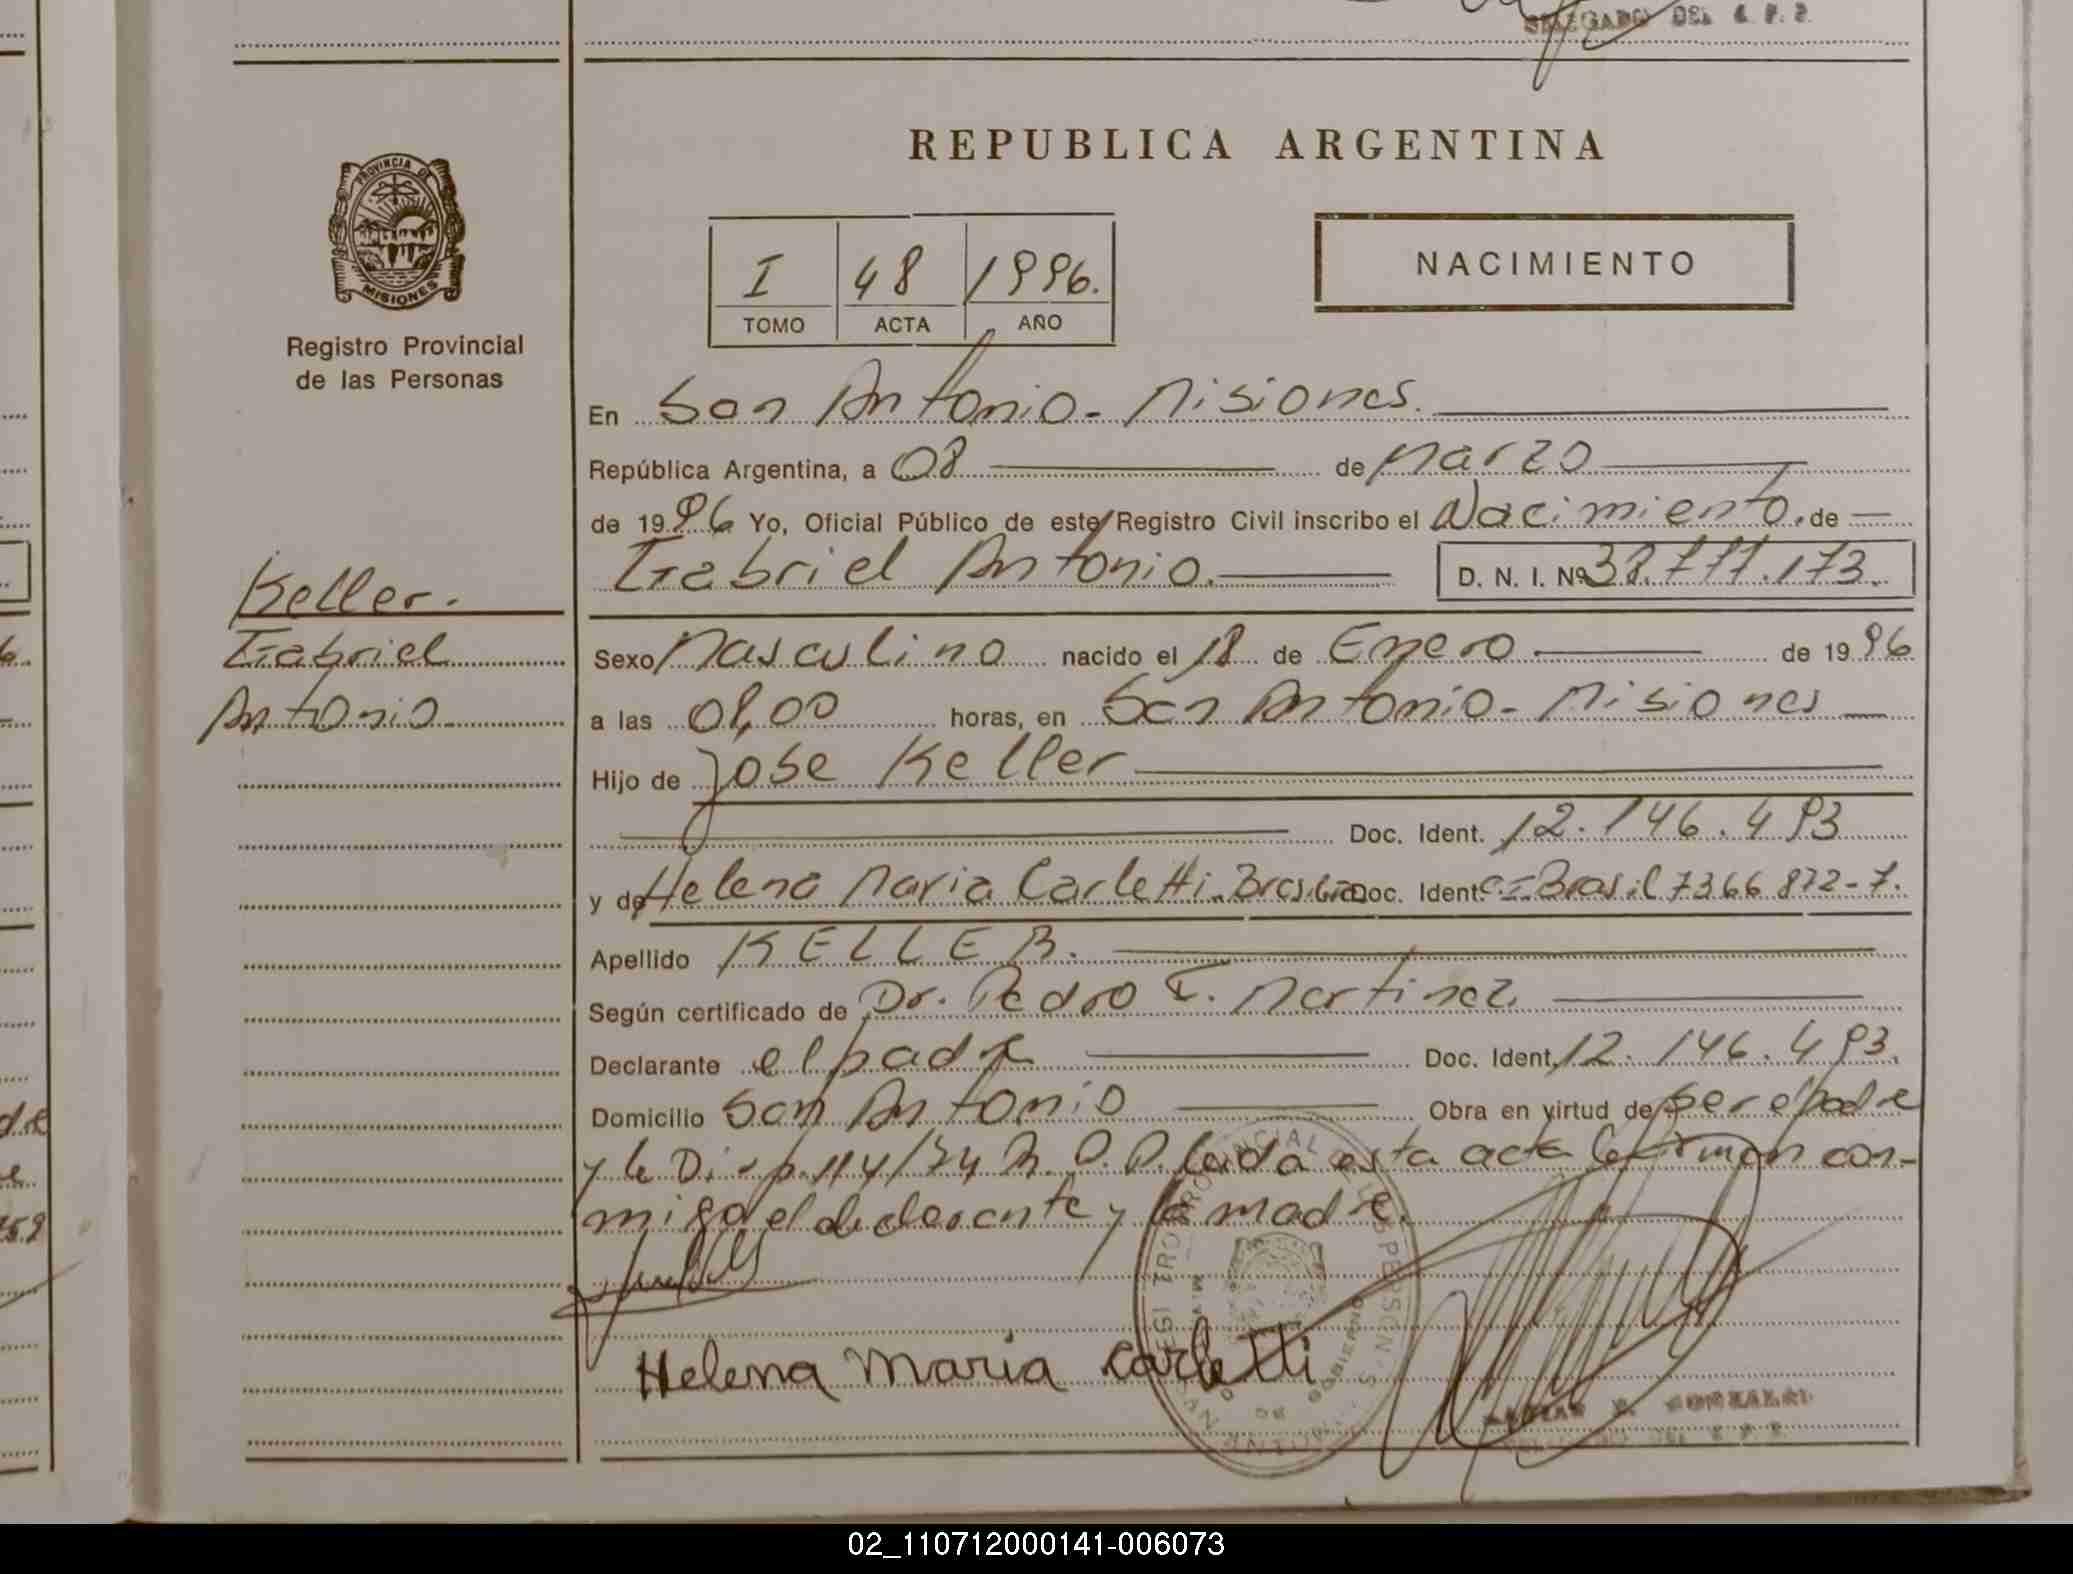 DELEGADO DEL R. P. P.
REPUBLICA ARGENTINA
PROVINCIA DE
MISIONES
Registro Provincial
de las Personas
I 48 1996.
TOMO ACTA AÑO
NACIMIENTO
En San Antonio - Misiones.
República Argentina, a 08 de Marzo
de 1996 Yo, Oficial Público de este Registro Civil inscribo el Nacimiento, de
Gabriel Antonio. D. N. I. Nº
Keller.
Gabriel
Antonio
Sexo Masculino nacido el 18 de Enero de 1996
a las horas, en San Antonio - Misiones
Hijo de Jose Keller
Doc. Ident. 12.146.493
y de Helena Maria Carletti - Doc. Ident. Brasil 7366872-7.
Apellido KELLER.
Según certificado de Dr. Pedro Martinez.
Declarante el padre Doc. Ident. 12.146.493.
Domicilio San Antonio Obra en virtud de ser el padre
y la Disp. 114/74 Leida esta acta la firman con-
migo el declarante y la madre.
Helena Maria Carletti
02_110712000141-006073